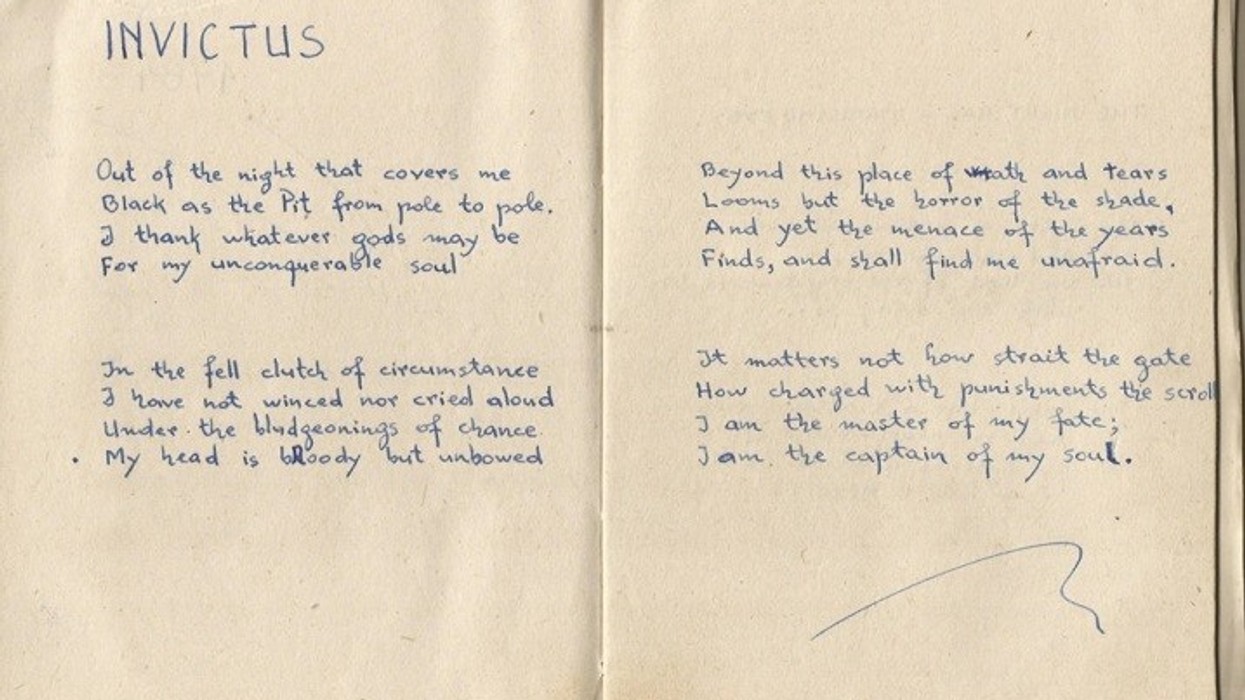 INVICTUS
Out of the night that covers me
Black as the Pit from pole to pole.
I thank whatever gods may be
For my unconquerable soul
In the fell clutch of circumstance
I have not winced nor cried aloud
Under the bludgeonings of chance.
My head is bloody but unbowed
Beyond this place of wrath and tears
Looms but the horror of the shade,
And yet the menace of the years
Finds, and shall find me unafraid.
It matters not how strait the gate
How charged with punishments the scroll
I am the master of my fate;
I am the captain of my soul.